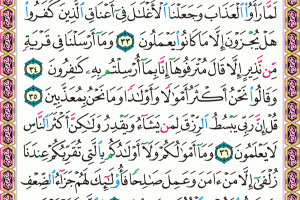 لَمَّا رَأَوُا۟ ٱلْعَذَابَ وَجَعَلْنَا ٱلْأَغْلَـٰلَ فِىٓ أَعْنَاقِ ٱلَّذِينَ كَفَرُوا۟
هَلْ يُجْزَوْنَ إِلَّا مَا كَانُوا۟ يَعْمَلُونَ ٣٣ وَمَآ أَرْسَلْنَا فِى قَرْيَةٍ
مِّن نَّذِيرٍ إِلَّا قَالَ مُتْرَفُوهَآ إِنَّا بِمَآ أُرْسِلْتُم بِهِۦ كَـٰفِرُونَ ٣٤
وَقَالُوا۟ نَحْنُ أَكْثَرُ أَمْوَٰلًا وَأَوْلَـٰدًا وَمَا نَحْنُ بِمُعَذَّبِينَ ٣٥
قُلْ إِنَّ رَبِّى يَبْسُطُ ٱلرِّزْقَ لِمَن يَشَآءُ وَيَقْدِرُ وَلَـٰكِنَّ أَكْثَرَ ٱلنَّاسِ
لَا يَعْلَمُونَ ٣٦ وَمَآ أَمْوَٰلُكُمْ وَلَآ أَوْلَـٰدُكُم بِٱلَّتِى تُقَرِّبُكُمْ عِندَنَا
زُلْفَىٰٓ إِلَّا مَنْ ءَامَنَ وَعَمِلَ صَـٰلِحًا فَأُو۟لَـٰٓئِكَ لَهُمْ جَزَآءُ ٱلضِّعْفِ